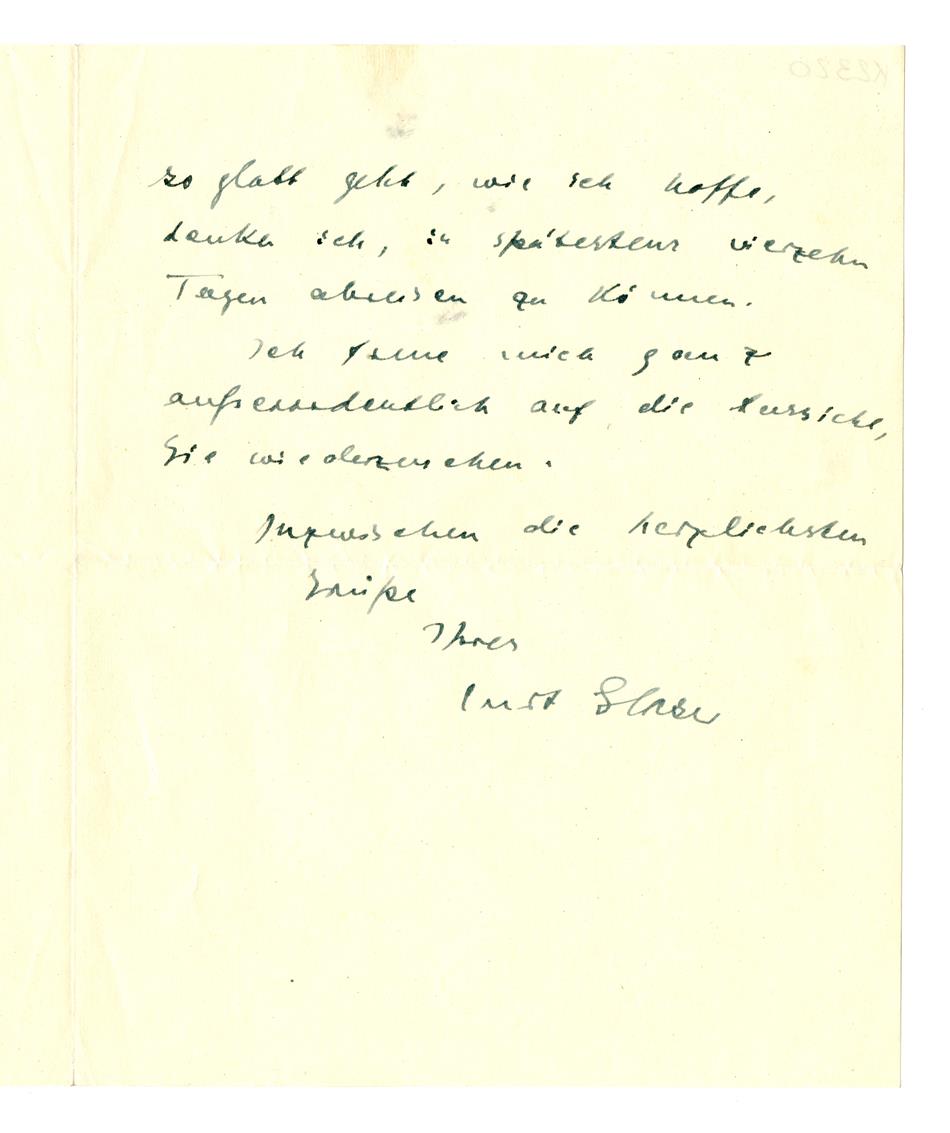 so glatt geht, wie ich hoffe,
denke ich, in spätestens vierzehn
Tagen abreisen zu können.
Ich freue mich ganz
außerordentlich auf die Aussicht,
Sie wiederzusehen.
Inzwischen die herzlichsten
Grüße
Ihres
Curt Glaser